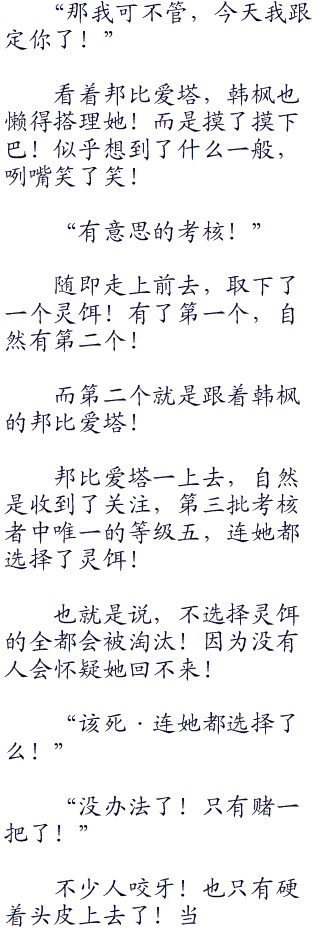 “那我可不管，今天我跟
定你了！”
看着邦比爱塔，韩枫也
懒得搭理她！而是摸了摸下
巴！似乎想到了什么一般，
咧嘴笑了笑！
“有意思的考核！”
随即走上前去，取下了
一个灵饵！有了第一个，自
然有第二个！
而第二个就是跟着韩枫
的邦比爱塔！
邦比爱塔一上去，自然
是收到了关注，第三批考核
者中唯一的等级五，连她都
选择了灵饵！
也就是说，不选择灵饵
的全都会被淘汰！因为没有
人会怀疑她回不来！
“该死·连她都选择了
么！”
“没办法了！只有赌一
把了！”
不少人咬牙！也只有硬
着头皮上去了！当